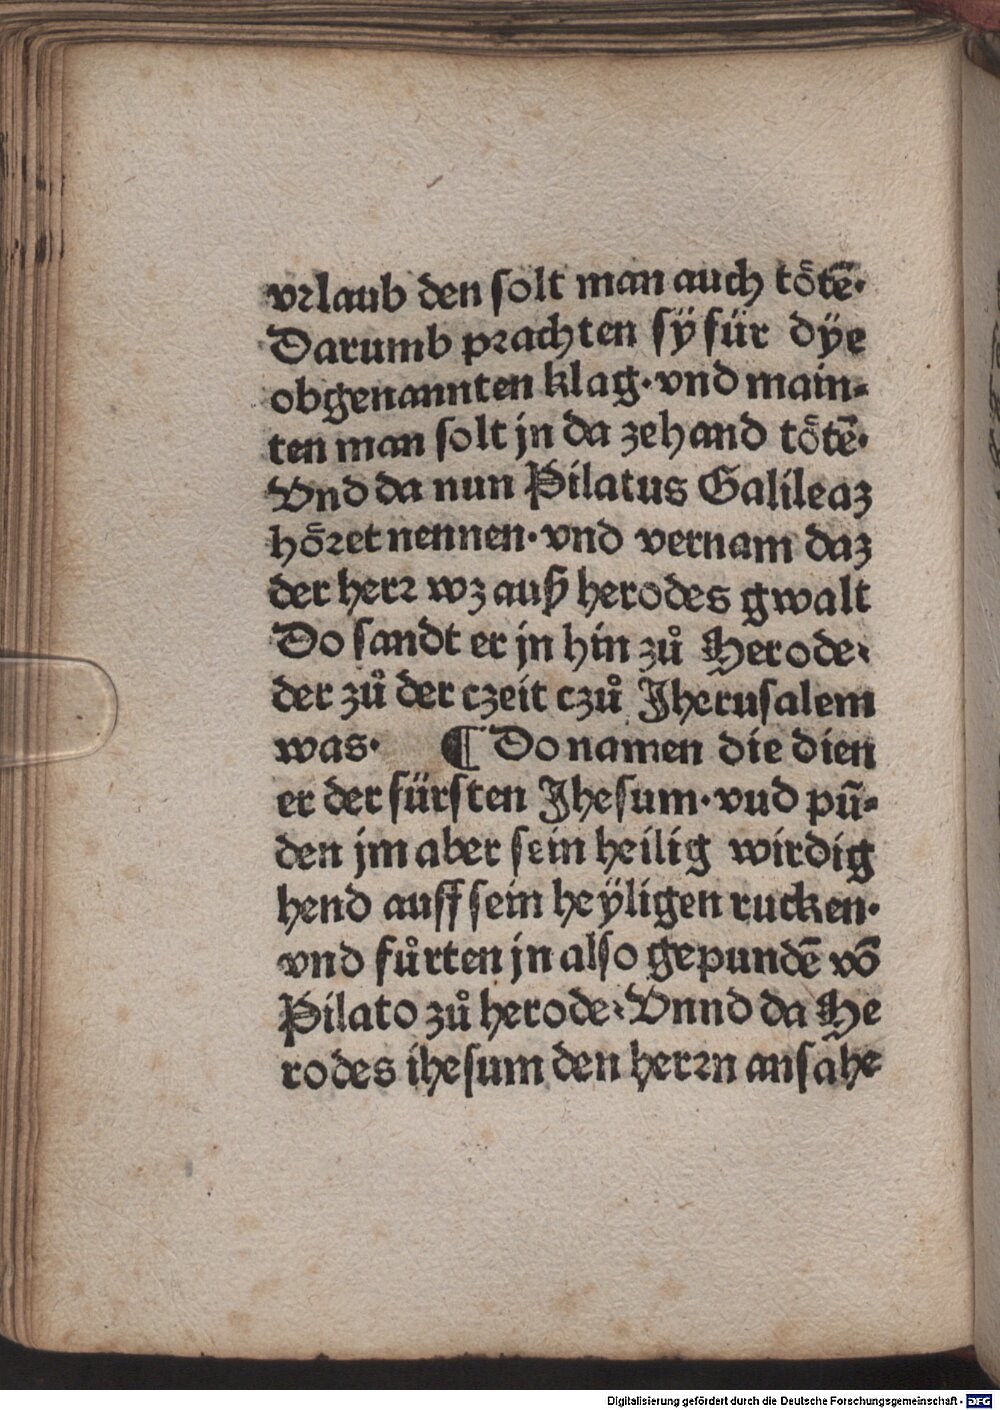 vrlaub den solt man auch toͤtē·
Darumb prachten sÿ für dÿe
obgenannten klag·vnd main⸗
ten man solt jn da zehand toͤtē·
Vnd da nun Pilatus Galileaz
hoͤret nennen·vnd vernam daz
der herr wz auß herodes gwalt
Do sandt er jn hin zů Herode·
der zů der czeit czů Jherusalem
was· ¶ Do namen die dien
er der fürsten Jhesum·vud pū⸗
den jm aber sein heilig wirdig
hend auff sein heÿligen rucken·
vnd fůrten jn also gepundē vō
Pilato zů herode·Vnnd da He
rodes ihesum den herrn ansahe
Digitalisierung gefördert durch die Deutsche Forschungsgemeinschaft - DFG